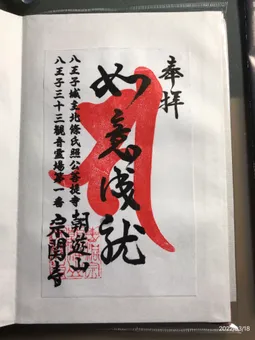 奉拝
如意成就
八王子城主北條氏照公菩提寺
八王子三十三観音霊場第一番
朝遊山
宗関寺
2022/03/18